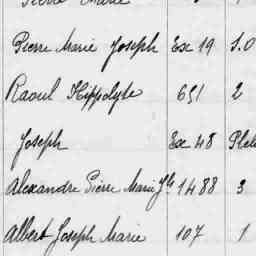 Pierre Marie
Pierre Marie Joseph Ex 19 S.O
Raoul Hippolyte 651 2
Joseph Ex 48
Alexandre Pierre Marie Jh 1488 3
Albert Joseph Marie 107 1